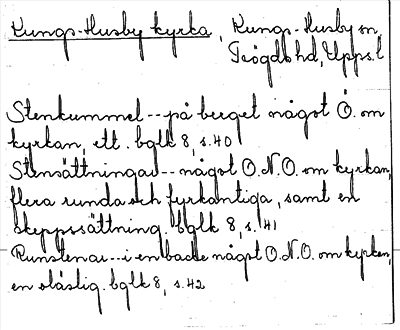 Kungs-Husby kyrka, Kungs-Husby sn,
Trögds hd, Upps. l
Stenkummel -- på berget något Ö. om
kyrkan, ett. bglk 8, s. 40
Stensättningar -- något O.N.O. om kyrkan,
flera runda och fyrkantiga, samt en
skeppssättning. bglk 8, s. 41
Runstenar -- i en backe något O.N.O. om kyrkan,
en oläslig. bglk 8, s. 42